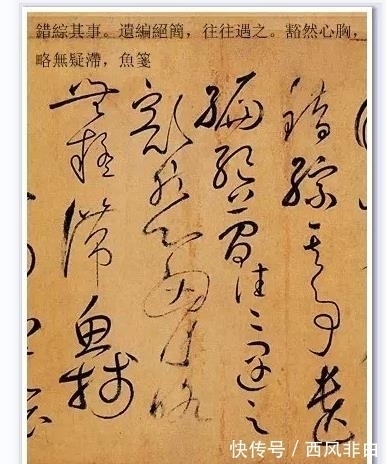 錯綜其事。遺編絕簡，往往遇之。豁然心胸，
略無疑滯，魚箋
錯綜其事遺
編絕簡往〻遇之
豁然心胸略
無疑滯魚牋
快传号/西风非白